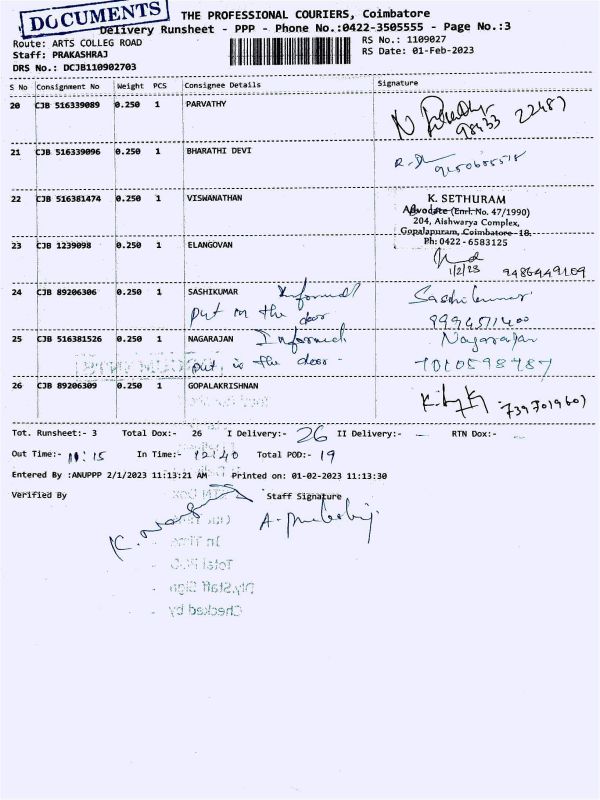 DOCUMENTS
THE PROFESSIONAL COURIERS, Coimbatore
Delivery Runsheet - PPP - Phone No.:0422-3505555 - Page No.:3
Route: ARTS COLLEG ROAD
RS No.: 1109027
Staff: PRAKASHRAJ
RS Date: 01-Feb-2023
DRS No.: DCJB110902703
S No Consignment No Weight PCS Consignee Details Signature
20 CJB 516339089 0.250 1 PARVATHY
98433 22487
21 CJB 516339096 0.250 1 BHARATHI DEVI
22 CJB 516381474 0.250 1 VISWANATHAN
K. SETHURAM
Advocate (Enrl. No. 47/1990)
204, Aishwarya Complex,
Gopalapuram, Coimbatore-18.
Ph: 0422 - 6583125
23 CJB 1239098 0.250 1 ELANGOVAN
1/2/23 9486449109
24 CJB 89206306 0.250 1 SASHIKUMAR Informed Sashikumar
put in the door 9994571400
25 CJB 516381526 0.250 1 NAGARAJAN Informed Nagarajan
put is the door - 7010598487
26 CJB 89206309 0.250 1 GOPALAKRISHNAN
Tot. Runsheet:- 3 Total Dox:- 26 I Delivery:- 26 II Delivery:- - RTN Dox:- -
Out Time:- 11:15 In Time:- 12:40 Total POD:- 19
Entered By :ANUPPP 2/1/2023 11:13:21 AM Printed on: 01-02-2023 11:13:30
Verified By Staff Signature
In Time
Total POD
Dly.Staff Sign
Checked by